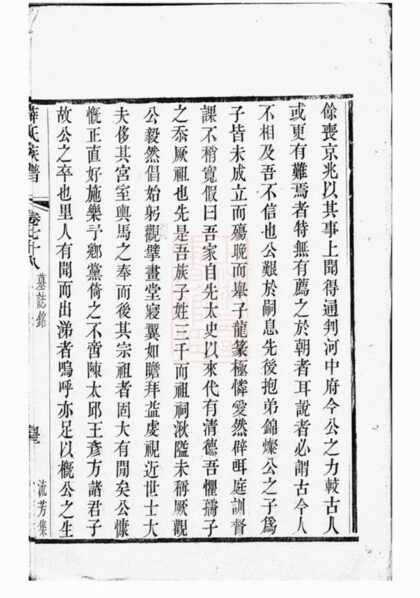 餘喪京兆以其事上聞得通判河中府今公之力較古人
或更有難焉者特無有薦之於朝者耳說者必謂古今人
不相及吾不信也公艱於嗣息先後抱弟錦燦公之子爲
子皆未成立而殤晚而舉子龍篆極憐愛然辟咡庭訓督
課不稍寬假曰吾家自先太史以來代有清德吾懼孺子
之忝厥祖也先是吾族子姓三千而祖祠湫隘未稱厥觀
公毅然倡始躬觀擘畫堂寢翼如瞻拜益虔視近世士大
夫侈其宮室輿馬之奉而後其宗祖者固大有閒矣公慷
慨正直好施樂予鄉黨倚之不啻陳太邱王彥方諸君子
故公之卒也里人有聞而出涕者嗚呼亦足以概公之生
薛氏族譜
卷之十八
墓誌銘
流芳集